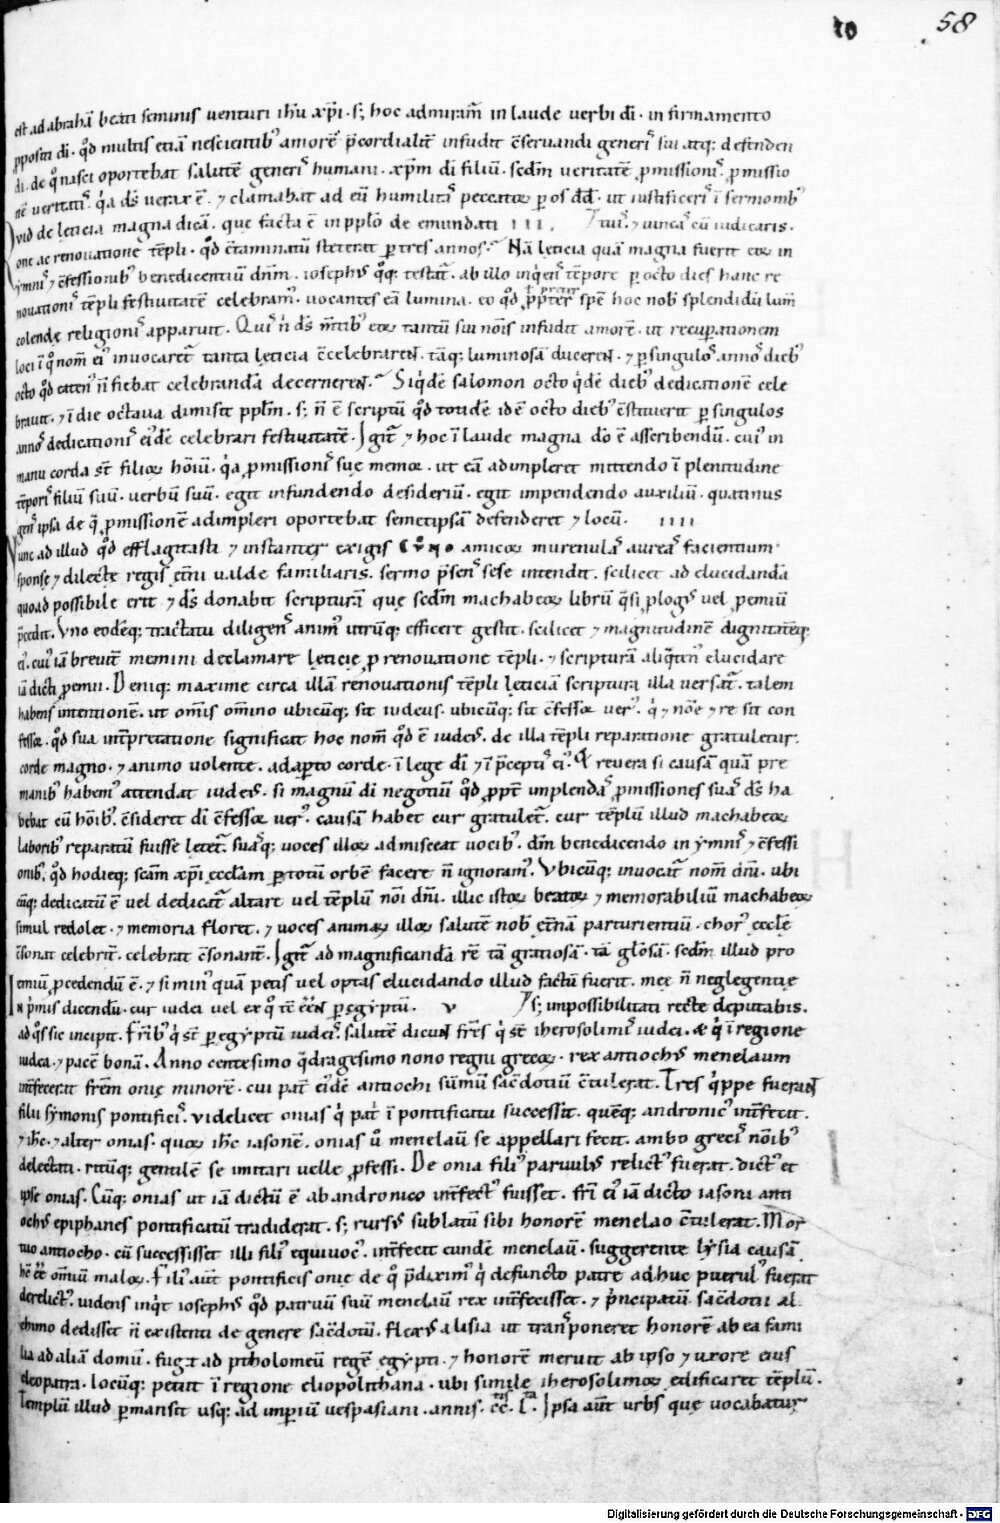 10 58
est ad abrahā beati seminis venturi ih̄u xp̄i · s; hoc admiram̄ in laude verbi dī · in firmamento
ꝓpositi dī · qd̊ multis etiā nescientib᾿ amorē p̄cordialit̄ infudit c̄servandi generis᾿ sui atq; defenden
di · de q̊ nasci oportebat salutē generis᾿ humani · xp̄m dī filiū · scd̄m veritatē ꝓmissionis᾿ · ꝓmissio
nē veritatis᾿ · q̇a ds̄ verax ē · ⁊ clamabat ad eū humilitas᾿ peccatoꝝ ꝑ os dd̄ · ut iustificeris᾿ ī sermonib᾿
tuis᾿ ⁊ vincas᾿ cū iudicaris ·
David de lęticia magna dicā · quę facta ē in pplō de emundati IIII ·
one ac renovatione tēpli · qd̊ c̄taminatū steterat ꝑ tres annos · Nā lęticia quā magna fuerit eoꝝ in
ẏmnis᾿ ⁊ c̄fessionib᾿ benedicentiū dn̄m · iosephus᾿ q̊q; testat᾿ · ab illo inq̇ens᾿ tēpore ꝑ octo dies hanc re
novationis᾿ tēpli festivitatē celebram᾿ · vocantes eā lumina · eo qd̊ ꝓpter spē hoc nob᾿ splendidū lum̄
colendę religionis᾿ apparuit · Quis᾿ n̄ ds̄ m̄tib᾿ eoꝝ tantū sui nōis infudit amorē · ut recuꝑationem
loci ī q̊ nom̄ ei᾿ invocaret᾿ tanta lęticia c̄celebrareɴ · tāq; luminosā duceren · ⁊ ꝑ singulos᾿ annos᾿ dieb᾿
octo qd̊ eaten᾿ n̄ fiebat celebrandā decernereɴ · Siq̇dē salomon octo q̇dē dieb᾿ dedicationē cele
bravit · ⁊ ī die octava dimisit pplm̄ · s; n̄ ē scriptū qd̊ totidē idē octo dieb᾿ c̄stituerit ꝑ singulos
annos᾿ dedicationis᾿ ei᾿dē celebrari festivitatē · Igit᾿ ⁊ hoc ī laude magna dō ē asscribendū · cui᾿ in
manu corda st̄ filioꝝ hōiū · q̇a ꝓmissionis᾿ suę memoꝛ · ut eā adimpleret mittendo ī plenitudine
tēporis᾿ filiū suū · verbū suū · egit infundendo desideriū · egit impendendo auxiliū · quatinus
gens᾿ ipsa de q̄ ꝓmissionē adimpleri oportebat semetipsā defenderet ⁊ locū · IIII
Nunc ad illud qd̊ efflagitasti ⁊ instanter exigis CVNO amicoꝝ murenulas᾿ aureas᾿ facientium
sponsę ⁊ dilectę regis et̄ni valde familiaris · sermo p̄sens᾿ sese intendit · scilicet ad elucidandā
quoad possibile erit ⁊ ds̄ donabit scripturā quę scd̄m machabeoꝝ librū q̄si ꝓlogus᾿ vel ꝓemiū
p̄cedit · Uno eodēq; tractatu diligens᾿ anim᾿ utrūq; efficere gestit · scilicet ⁊ magnitudinē dignitatēq;
ei᾿ · cui᾿ iā brevit᾿ memini declamare lęticię ꝓ renovatione tēpli · ⁊ scripturā aliq̄ten᾿ elucidare
iā dicti ꝓemii · Deniq; maxime circa illā renovationis tēpli lęticiā scriptura illa versat᾿ · talem
habens intentionē · ut om̄is omnino ubicūq; sit iudeus · ubicūq; sit c̄fessoꝛ ver᾿ · q̇ ⁊ nōe ⁊ re sit con
fessoꝛ · qd̊ sua int̄pretatione significat hoc nom̄ qd̊ ē iudeus᾿ · de illa tēpli reparatione gratuletur ·
corde magno · ⁊ animo volente · adaꝑto corde · ī lege dī ⁊ ī p̄ceptis᾿ ei᾿ · Et revera si causā quā pre
manib᾿ habem᾿ attendat iudeus᾿ · si magnū dī negotiū qd̊ ꝓpt̄ implendas᾿ ꝓmissiones suas᾿ ds̄ ha
bebat cū hōib᾿ · c̄sideret dī c̄fessoꝛ ver᾿ · causā habet cur gratulet᾿ · cur tēplū illud machabeoꝝ
laborib᾿ reparatū fuisse lętet᾿ · suasq; voces illoꝝ admisceat vocib᾿ · dn̄m benedicendo in ẏmnis᾿ ⁊ c̄fessi
onib᾿ · qd̊ hodieq; scām xp̄i ęccłam ꝑ totū orbē facere n̄ ignoram᾿ · Ubicūq; invocat᾿ nom̄ dn̄i · ubi
cūq; dedicatū ē vel dedicat᾿ altare vel tēplū nōi dn̄i · illic istoꝝ beatoꝝ ⁊ memorabiliū machabeoꝝ
simul redolet · ⁊ memoria floret · ⁊ voces animaꝝ illoꝝ salutē nob᾿ et̄nā parturientiū · chor᾿ ęccłę
c̄sonat celebrit᾿ · celebrat c̄sonant᾿ · Igit᾿ ad magnificandā rē tā gratiosā · tā gl̄osā · scd̄m illud pro
emiū ꝓcedendū ē · ⁊ si min᾿ quā petis vel optas elucidando illud factū fuerit · meę n̄ neglegentię
s; impossibilitati recte deputabis ·
In p̄mis dicendū · cur iudei vel ex q̊ tē eēɴ ꝑ egẏptū · V
ad q̊s sic incipit · Fr̄ib᾿ q̇ st̄ ꝑ egẏptū iudeis᾿ · salutē dicuɴ fr̄es q̇ st̄ iherosolimis᾿ iudei · & q̇ ī regione
iudea · ⁊ pacē bonā · Anno centesimo q̄dragesimo nono regni grecoꝝ · rex antiochus᾿ menelaum
int̄fecerat fr̄em onię minorē · cui pat̄ ei᾿dē antiochi sūmū sacđotiū c̄tulerat · Tres q̇ppe fueraɴt
filii sẏmonis pontificis᾿ · videlicet onias q̇ pat̄ ī pontificatu successit · quēq; andronic᾿ int̄fecit ·
⁊ ih̄c · ⁊ alter onias · quoꝝ ih̄c iasonē · onias ů menelaū se appellari fecit · ambo grecis᾿ nōib᾿
delectati · ritūq; gentilē se imitari velle ꝓfessi · De onia fili᾿ parvulus᾿ relict᾿ fuerat · dict᾿ et
ipse onias · Cūq; onias ut iā dictū ē ab andronico int̄fect᾿ fuisset · fr̄i ei᾿ iā dicto iasoni anti
ochus᾿ epiphanes pontificatū tradiderat · s; rursus᾿ sublatū sibi honorē menelao c̄tulerat · Mor
tuo antiocho · cū successisset illi fili᾿ equivoc᾿ · int̄fecit eundē menelaū · suggerente lẏsia causā
hē eē omniū maloꝝ · Fili᾿ aūt pontificis onię de q̊ p̄dixim᾿ q̇ defuncto patre adhuc puerul᾿ fuerat
derelict᾿ · videns inq̇t iosephus᾿ qd̊ patruū suū menelaū rex int̄fecisset · ⁊ ṗncipatū sacđotii al
chimo dedisset n̄ existenti de genere sacđotū · flexus᾿ a lisia ut transponeret honorē ab ea fami
lia ad aliā domū · fugit ad ptholomeū regē egẏpti · ⁊ honorē meruit ab ipso ⁊ uxore eius
cleopatra · locūq; petiit ī regione eliopolithana · ubi simile iherosolimoꝝ edificarit tēplū ·
Templū illud ꝑmansit usq; ad imꝑiū vespasiani · annis · cc̄c · L · Ipsa aūt urbs quę vocabatur
Digitalisierung gefördert durch die Deutsche Forschungsgemeinschaft - DFG